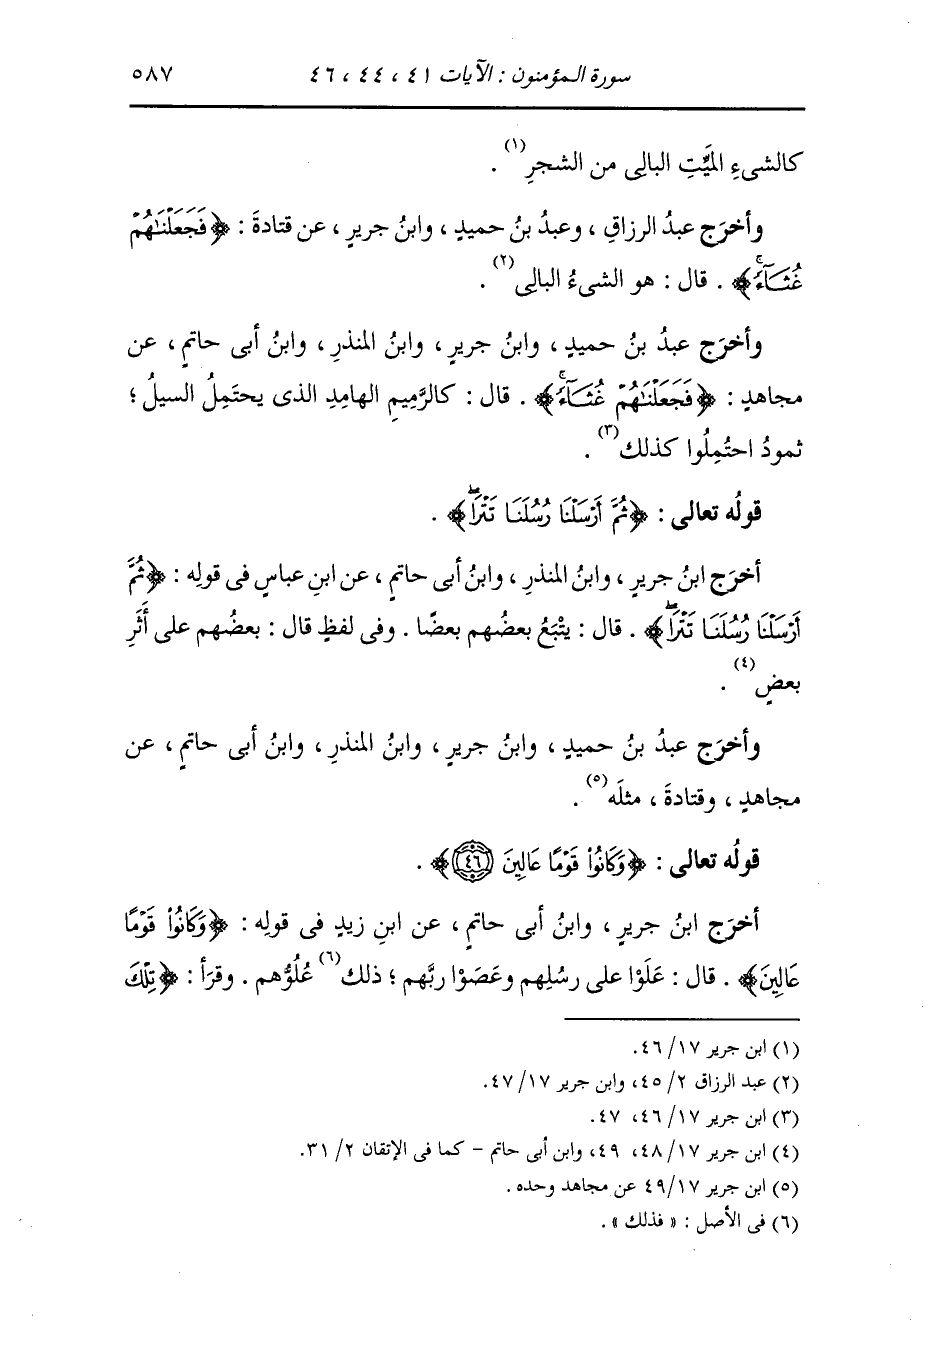 سورة المؤمنون : الآيات ٤١ ، ٤٤ ، ٤٦ ٥٨٧
كالشىءِ الميِّتِ البالِى من الشجرِ(١) .
وأخرَج عبدُ الرزاقِ ، وعبدُ بنُ حميدٍ ، وابنُ جريرٍ ، عن قتادةَ : ﴿فَجَعَلْنَٰهُمْ
غُثَآءً﴾ . قال : هو الشىءُ البالِى(٢) .
وأخرَج عبدُ بنُ حميدٍ ، وابنُ جريرٍ ، وابنُ المنذرِ ، وابنُ أبى حاتمٍ ، عن
مجاهدٍ : ﴿فَجَعَلْنَٰهُمْ غُثَآءً﴾ . قال : كالرَّمِيمِ الهامِدِ الذى يحتَمِلُ السيلُ ؛
ثمودُ احتُمِلُوا كذلك(٣) .
قولُه تعالى : ﴿ثُمَّ أَرْسَلْنَا رُسُلَنَا تَتْرَاۖ﴾ .
أخرَج ابنُ جريرٍ ، وابنُ المنذرِ ، وابنُ أبى حاتمٍ ، عن ابنِ عباسٍ فى قولِه : ﴿ثُمَّ
أَرْسَلْنَا رُسُلَنَا تَتْرَاۖ﴾ . قال : يتْبَعُ بعضُهم بعضًا . وفى لفظٍ قال : بعضُهم على أَثَرِ
بعضٍ(٤) .
وأخرَج عبدُ بنُ حميدٍ ، وابنُ جريرٍ ، وابنُ المنذرِ ، وابنُ أبى حاتمٍ ، عن
مجاهدٍ ، وقتادةَ ، مثلَه(٥) .
قولُه تعالى : ﴿وَكَانُواْ قَوْمًا عَالِينَ ٤٦﴾ .
أخرَج ابنُ جريرٍ ، وابنُ أبى حاتمٍ ، عن ابنِ زيدٍ فى قولِه : ﴿وَكَانُواْ قَوْمًا
عَالِينَ﴾ . قال : عَلَوْا على رسُلِهم وعَصَوْا ربَّهم ؛ ذلك(٦) عُلُوُّهم . وقرَأ : ﴿تِلْكَ
(١) ابن جرير ١٧/ ٤٦.
(٢) عبد الرزاق ٢/ ٤٥، وابن جرير ١٧/ ٤٧.
(٣) ابن جرير ١٧/ ٤٦، ٤٧.
(٤) ابن جرير ١٧/ ٤٨، ٤٩، وابن أبى حاتم - كما فى الإتقان ٢/ ٣١.
(٥) ابن جرير ١٧/ ٤٩ عن مجاهد وحده .
(٦) فى الأصل : « فذلك » .